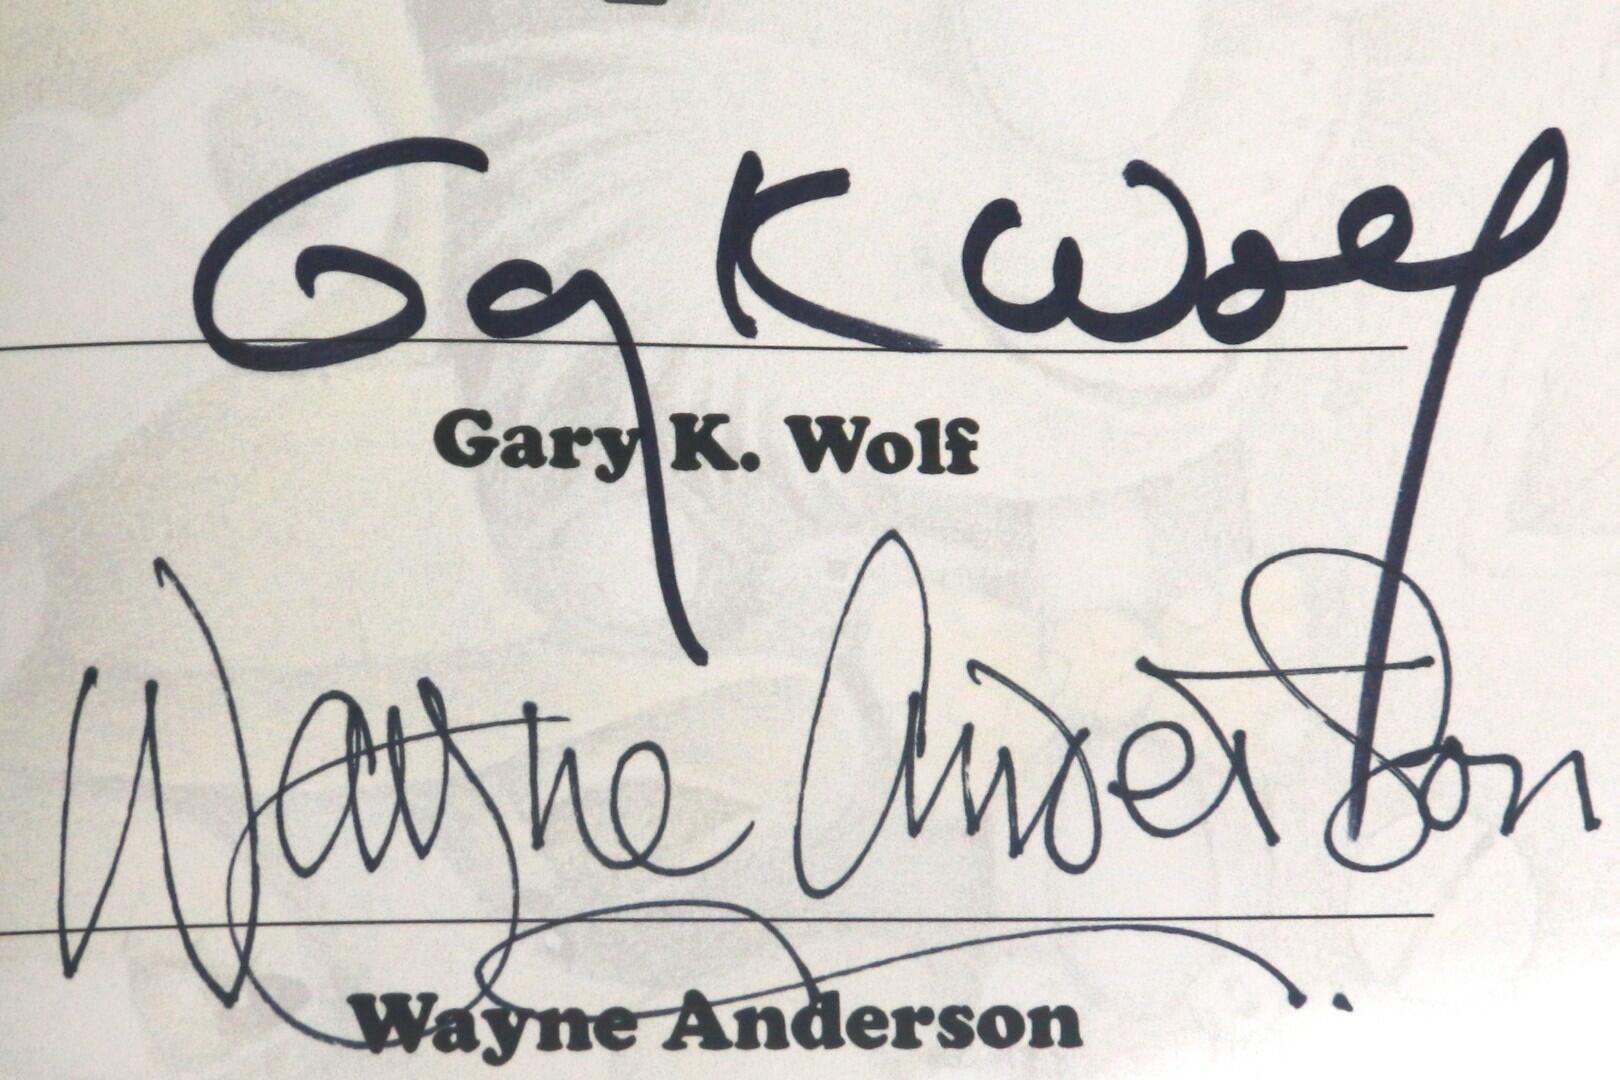 Gary K Wolf
Gary K. Wolf
Wayne Anderson
Wayne Anderson